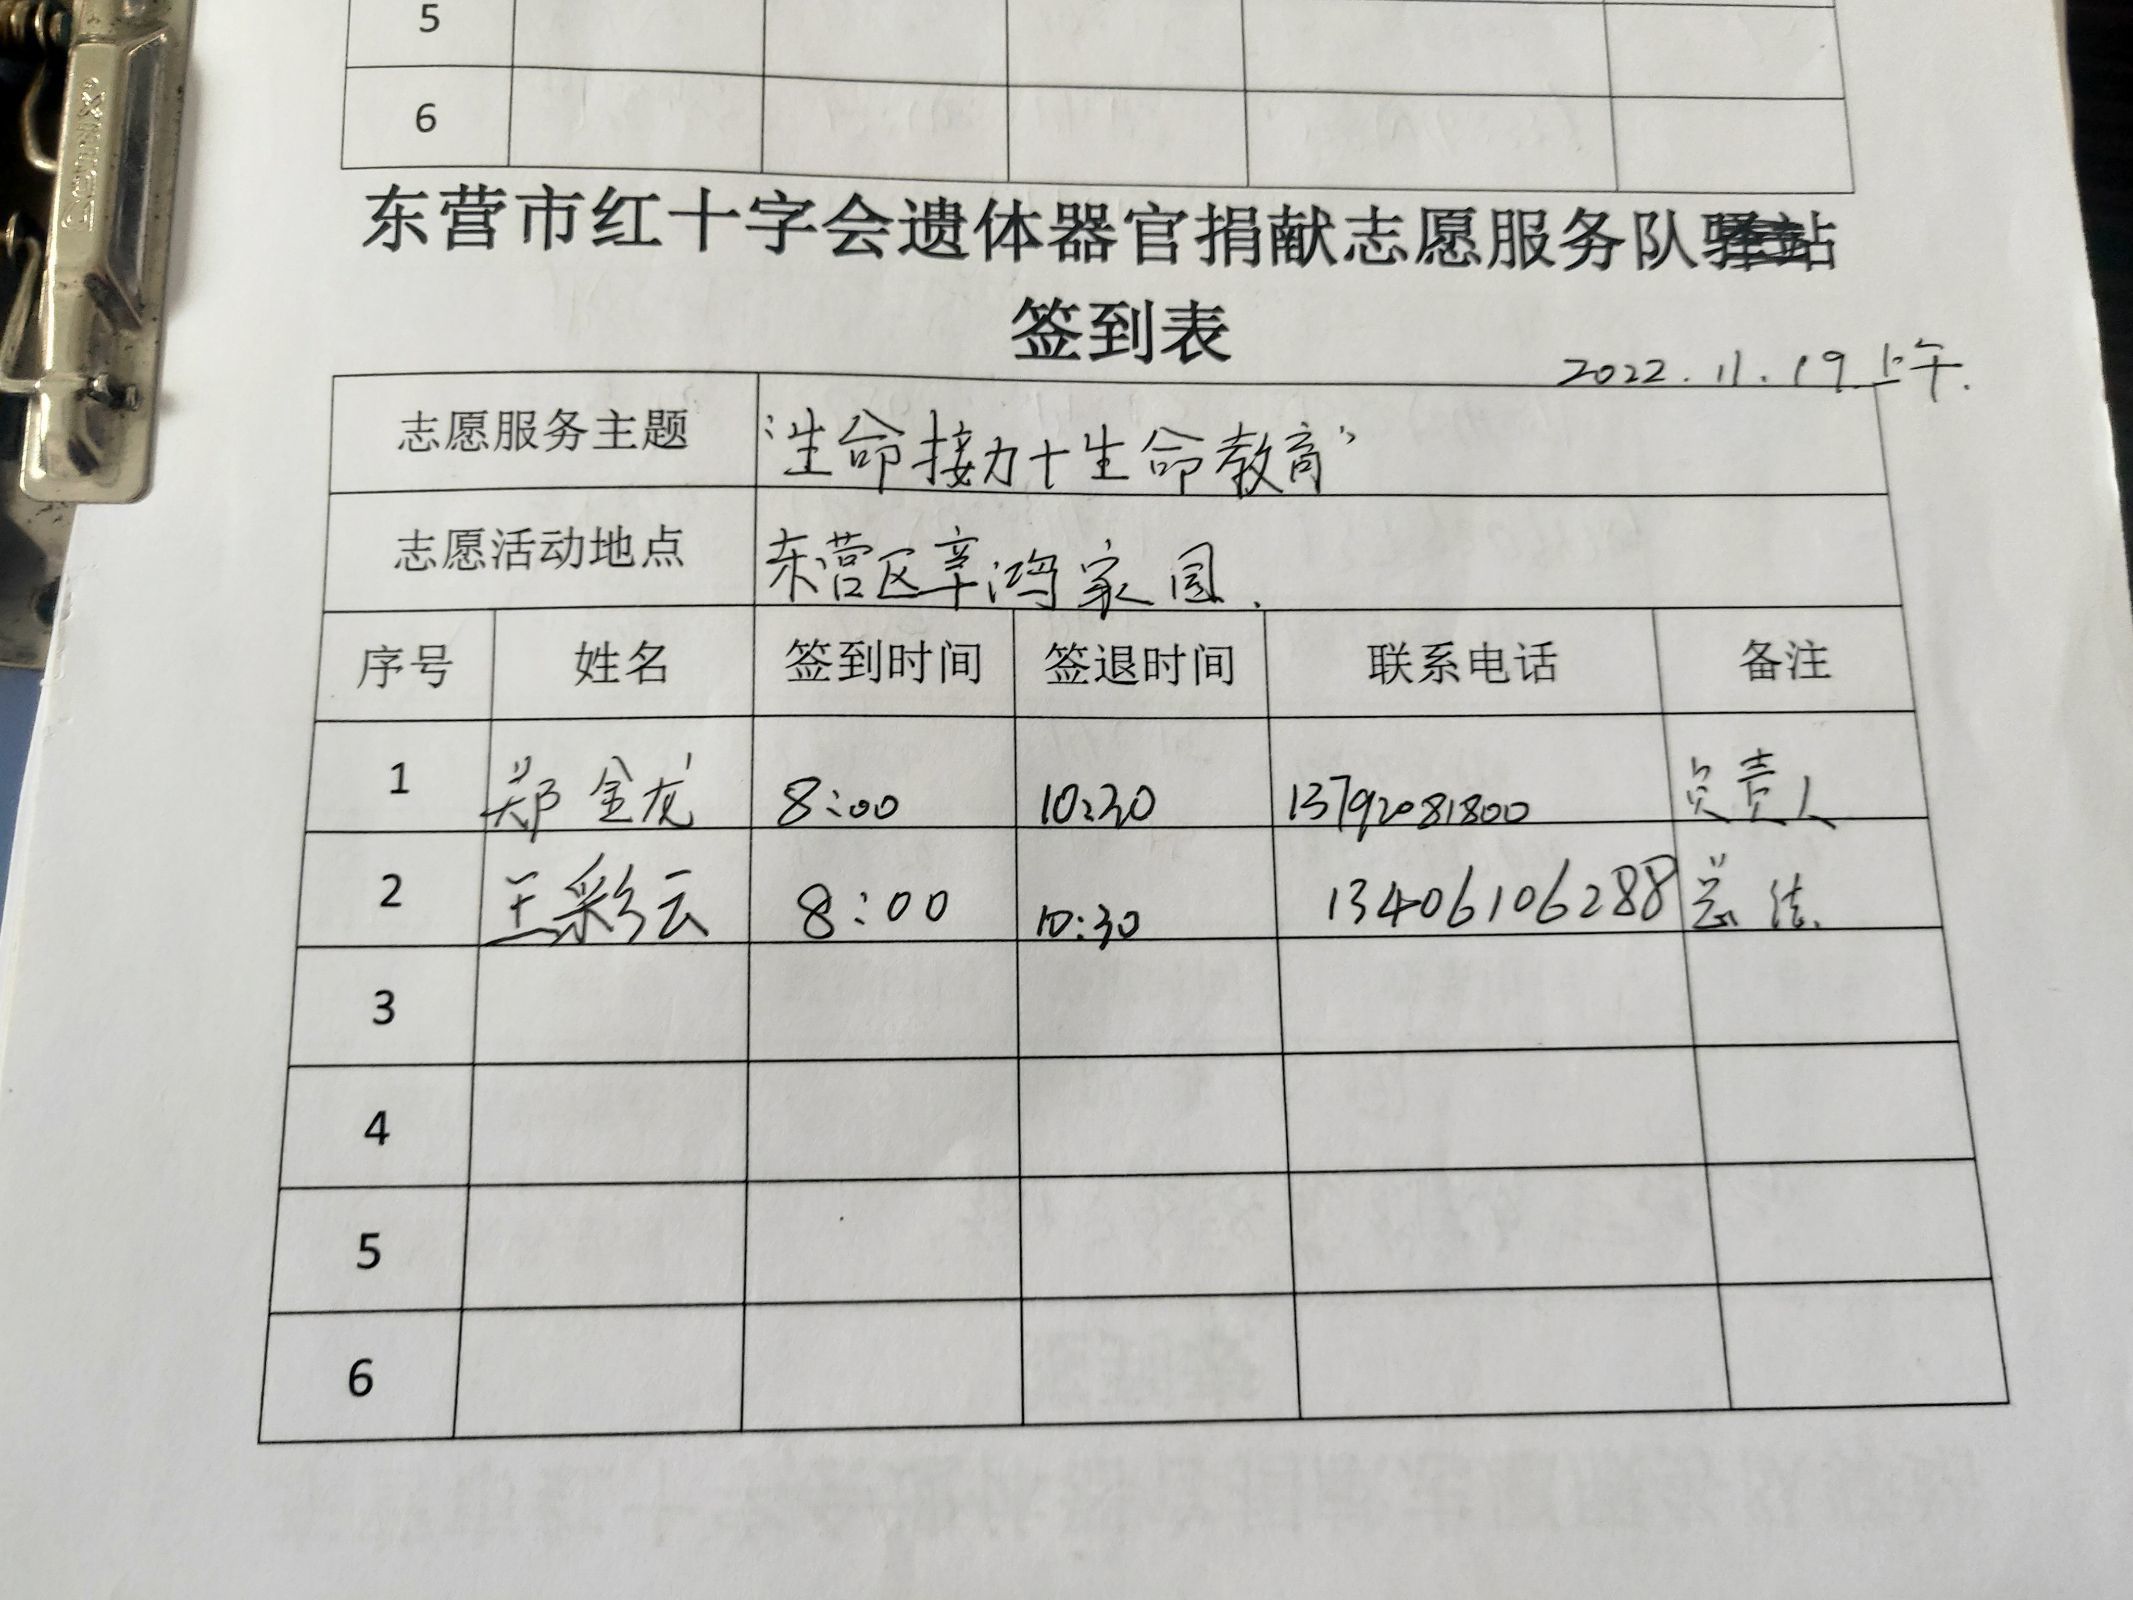 5
6
东营市红十字会遗体器官捐献志愿服务队驿站
签到表
2022.11.19上午.
志愿服务主题 “生命接力+生命教育”
志愿活动地点 东营区辛鸿家园.
序号 姓名 签到时间 签退时间 联系电话 备注
1 郑金龙 8:00 10:30 13792081800 负责人
2 王彩云 8:00 10:30 13406106288 总结.
3
4
5
6